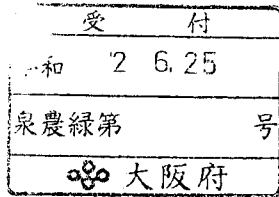 受 付
和 2 6. 25
泉農緑第 号
大阪府